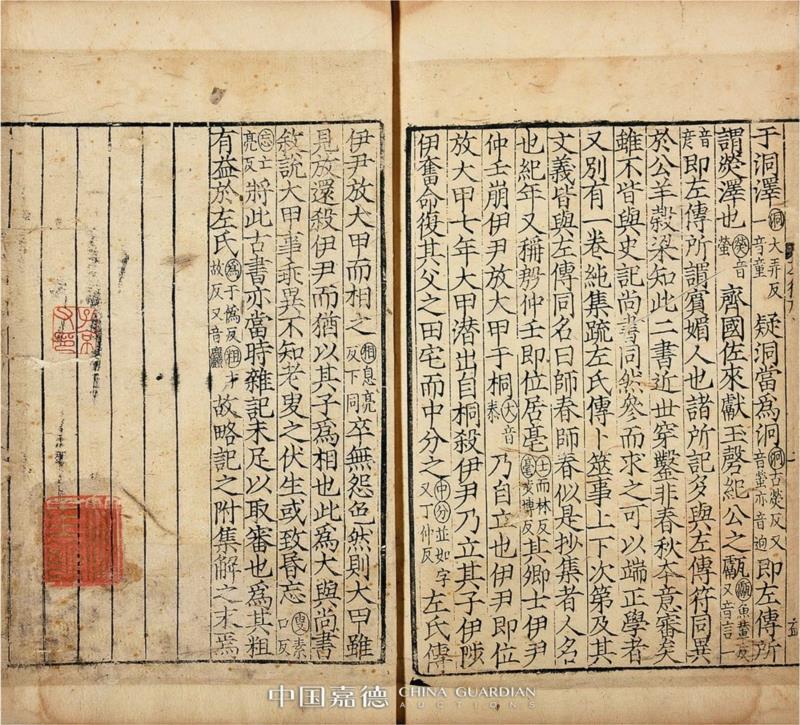 于洞澤洞大弄反音童疑洞當為泂泂古熒反又音螢亦音迥即左傳所
謂熒澤也熒音螢齊國佐來獻玉磬紀公之甗甗魚輦反又音言一
音彥即左傳所謂賓媚人也諸所記多與左傳符同異
於公羊穀梁知此二書近世穿鑿非春秋本意審矣
雖不皆與史記尚書同然參而求之可以端正學者
又別有一卷純集疏左氏傳卜筮事上下次第及其
文義皆與左傳同名曰師春師春似是抄集者人名
也紀年又稱殷仲壬即位居亳壬而林反亳步博反其卿士伊尹
仲壬崩伊尹放大甲于桐大音泰乃自立也伊尹即位
放大甲七年大甲潛出自桐殺伊尹乃立其子伊陟
伊奮命復其父之田宅而中分之中分並如字又丁仲反左氏傳
伊尹放大甲而相之相息亮反下同卒無怨色然則大甲雖
見放還殺伊尹而猶以其子為相也此為大與尚書
敘說大甲事乖異不知老叟之伏生或致昏忘叟素口反
忘亡亮反將此古書亦當時雜記未足以取審也為其粗
有益於左氏為于偽反粗才故反又音麤故略記之附集解之末焉
中国嘉德 CHINA GUARDIAN
AUCTIONS